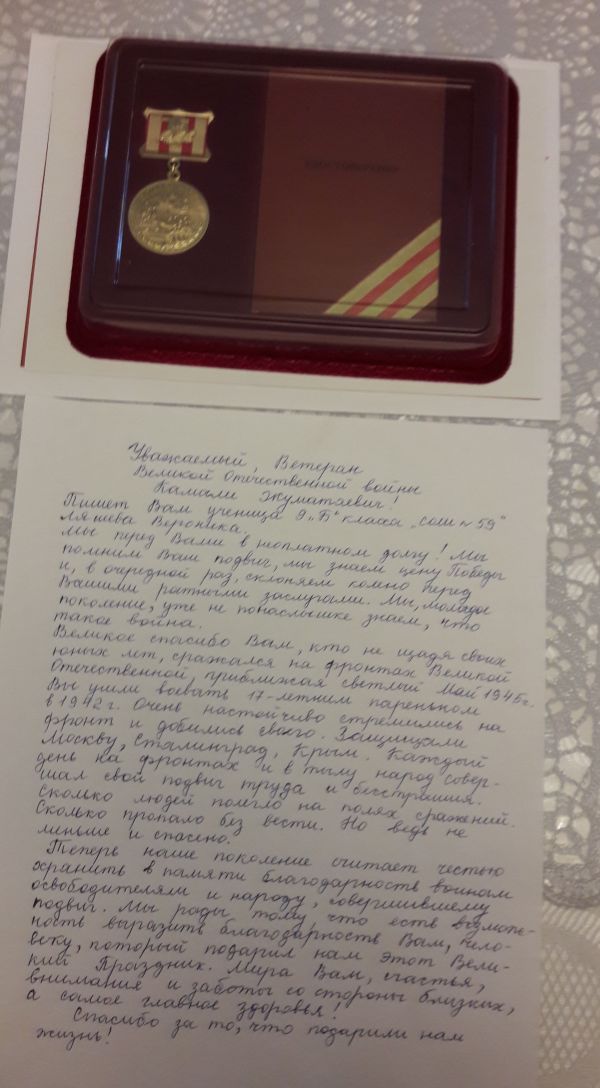 УДОСТОВЕРЕНИЕ
Уважаемый, Ветеран
Великой Отечественной войны
Камили Жуматаевич!
Пишет Вам ученица 9 „Б“ класса „сош № 59“
Ляшева Вероника.
Мы перед Вами в неоплатном долгу! Мы
помним Ваш подвиг, мы знаем цену Победы
и, в очередной раз, склоняем колено перед
Вашими ратными заслугами. Мы, молодое
поколение, уже не понаслышке знаем, что
такое война.
Великое спасибо Вам, кто не щадя своих
юных лет, сражался на фронтах Великой
Отечественной, приближая светлый Май 1945г.
Вы ушли воевать 17-летним пареньком
в 1942 г. Очень настойчиво стремились на
фронт и добились своего. Защищали
Москву, Сталинград, Крым. Каждый
день на фронтах и в тылу народ совер-
шал свой подвиг труда и бесстрашия.
Сколько людей полегло на полях сражений.
Сколько пропало без вести. Но ведь не
меньше и спасено.
Теперь наше поколение считает честью
хранить в памяти благодарность воинам
освободителям и народу, совершившему
подвиг. Мы рады тому, что есть возмож-
ность выразить благодарность Вам, чело-
веку, который подарил нам этот Вели-
кий Праздник. Мира Вам, счастья,
внимание и заботы со стороны близких,
а самое главное здоровья!
Спасибо за то, что подарили нам
жизнь!